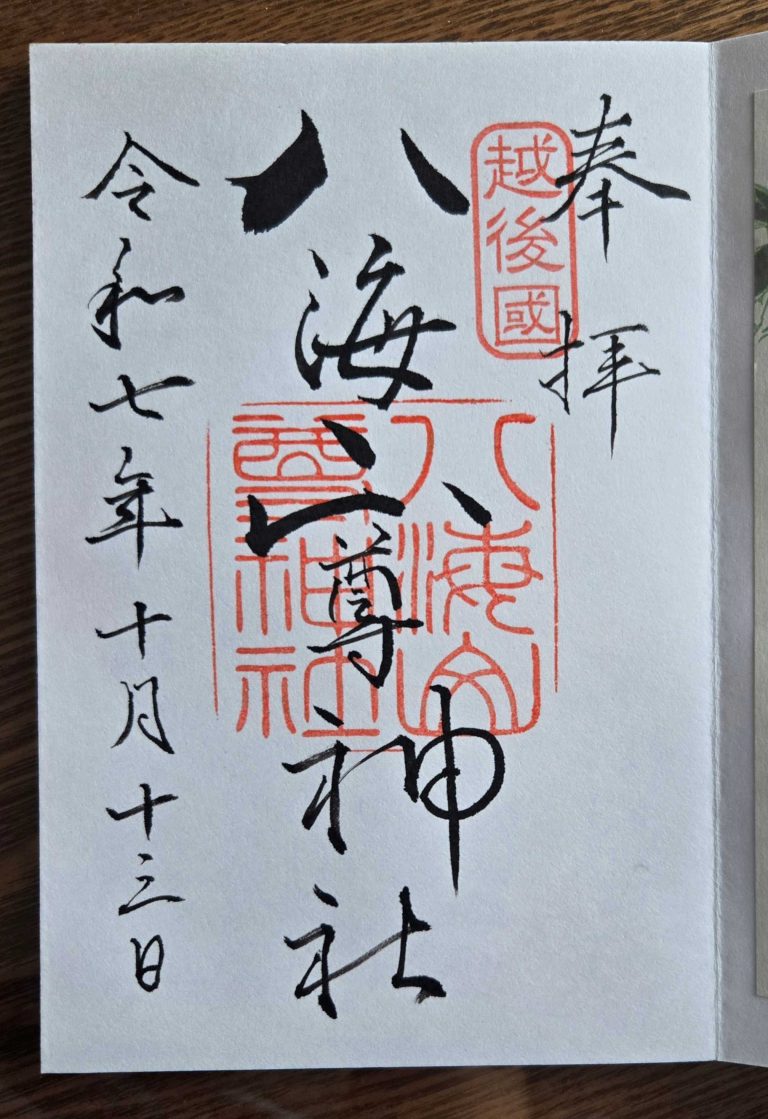 奉拝
越後國
八海山尊神社
八海山
尊神社
令和七年十月十三日